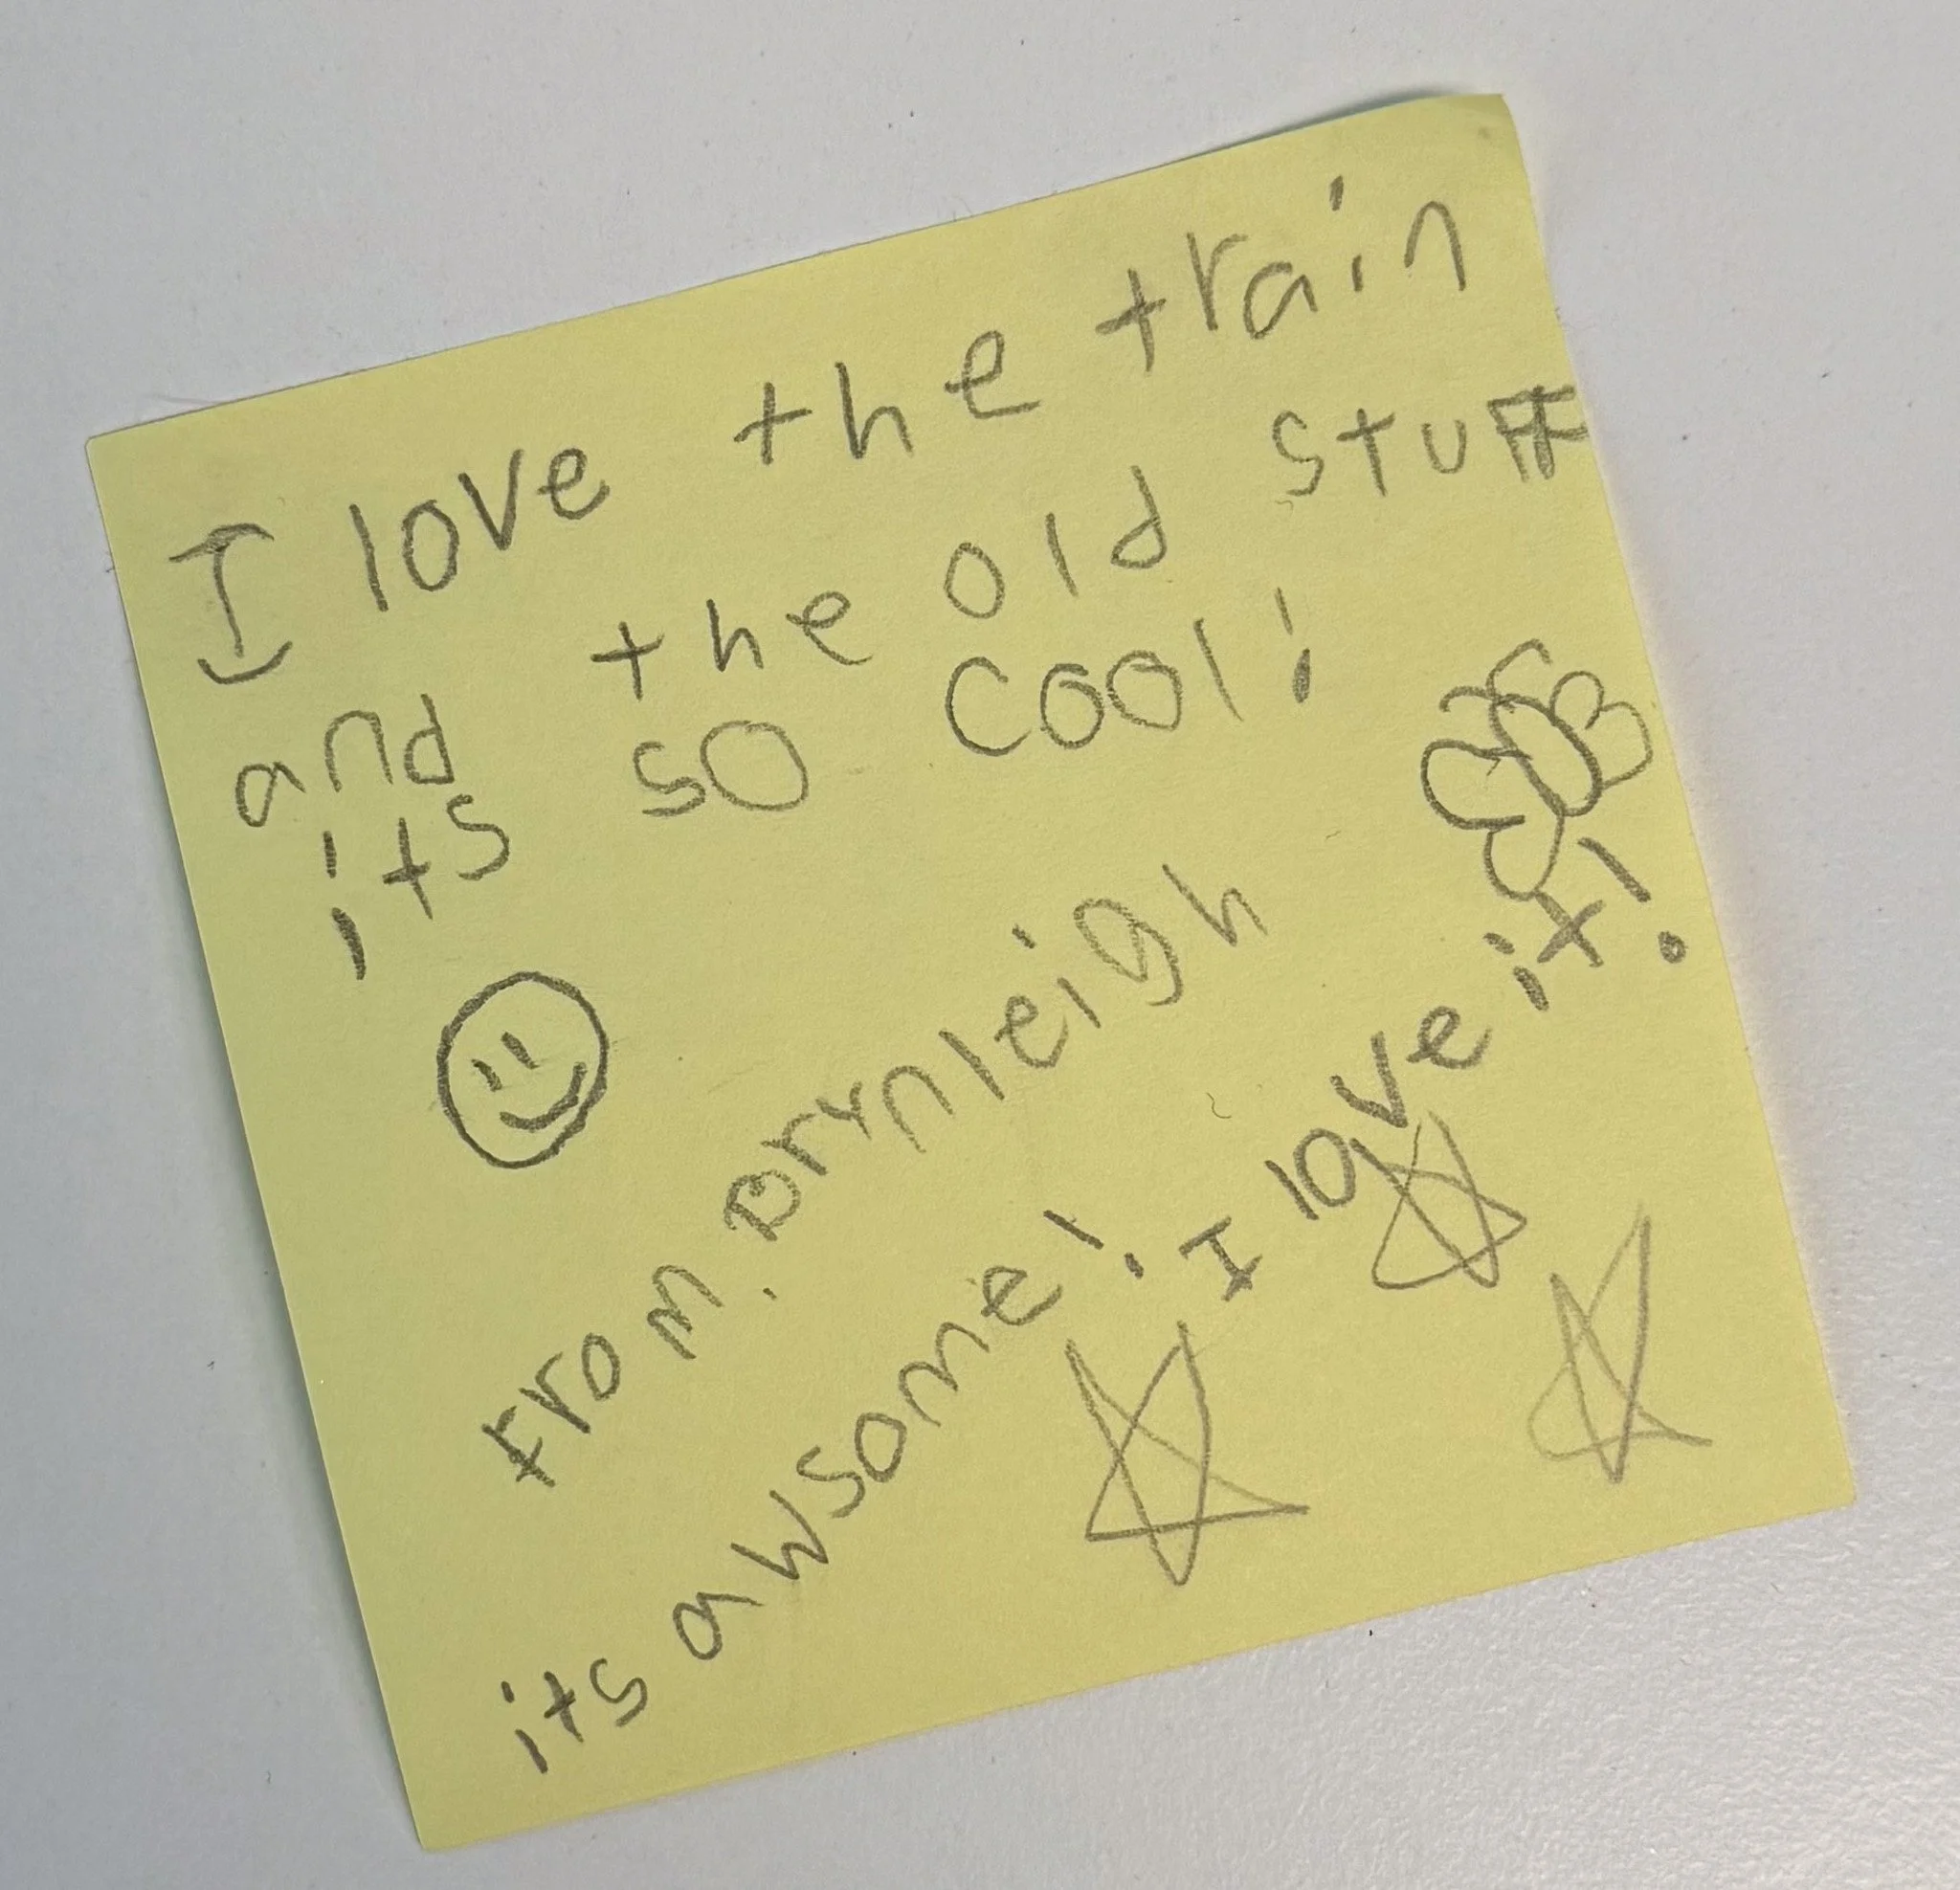 I love the train
and the old stuff
its so cool!
From. Brynleigh
its awsome! I love it!